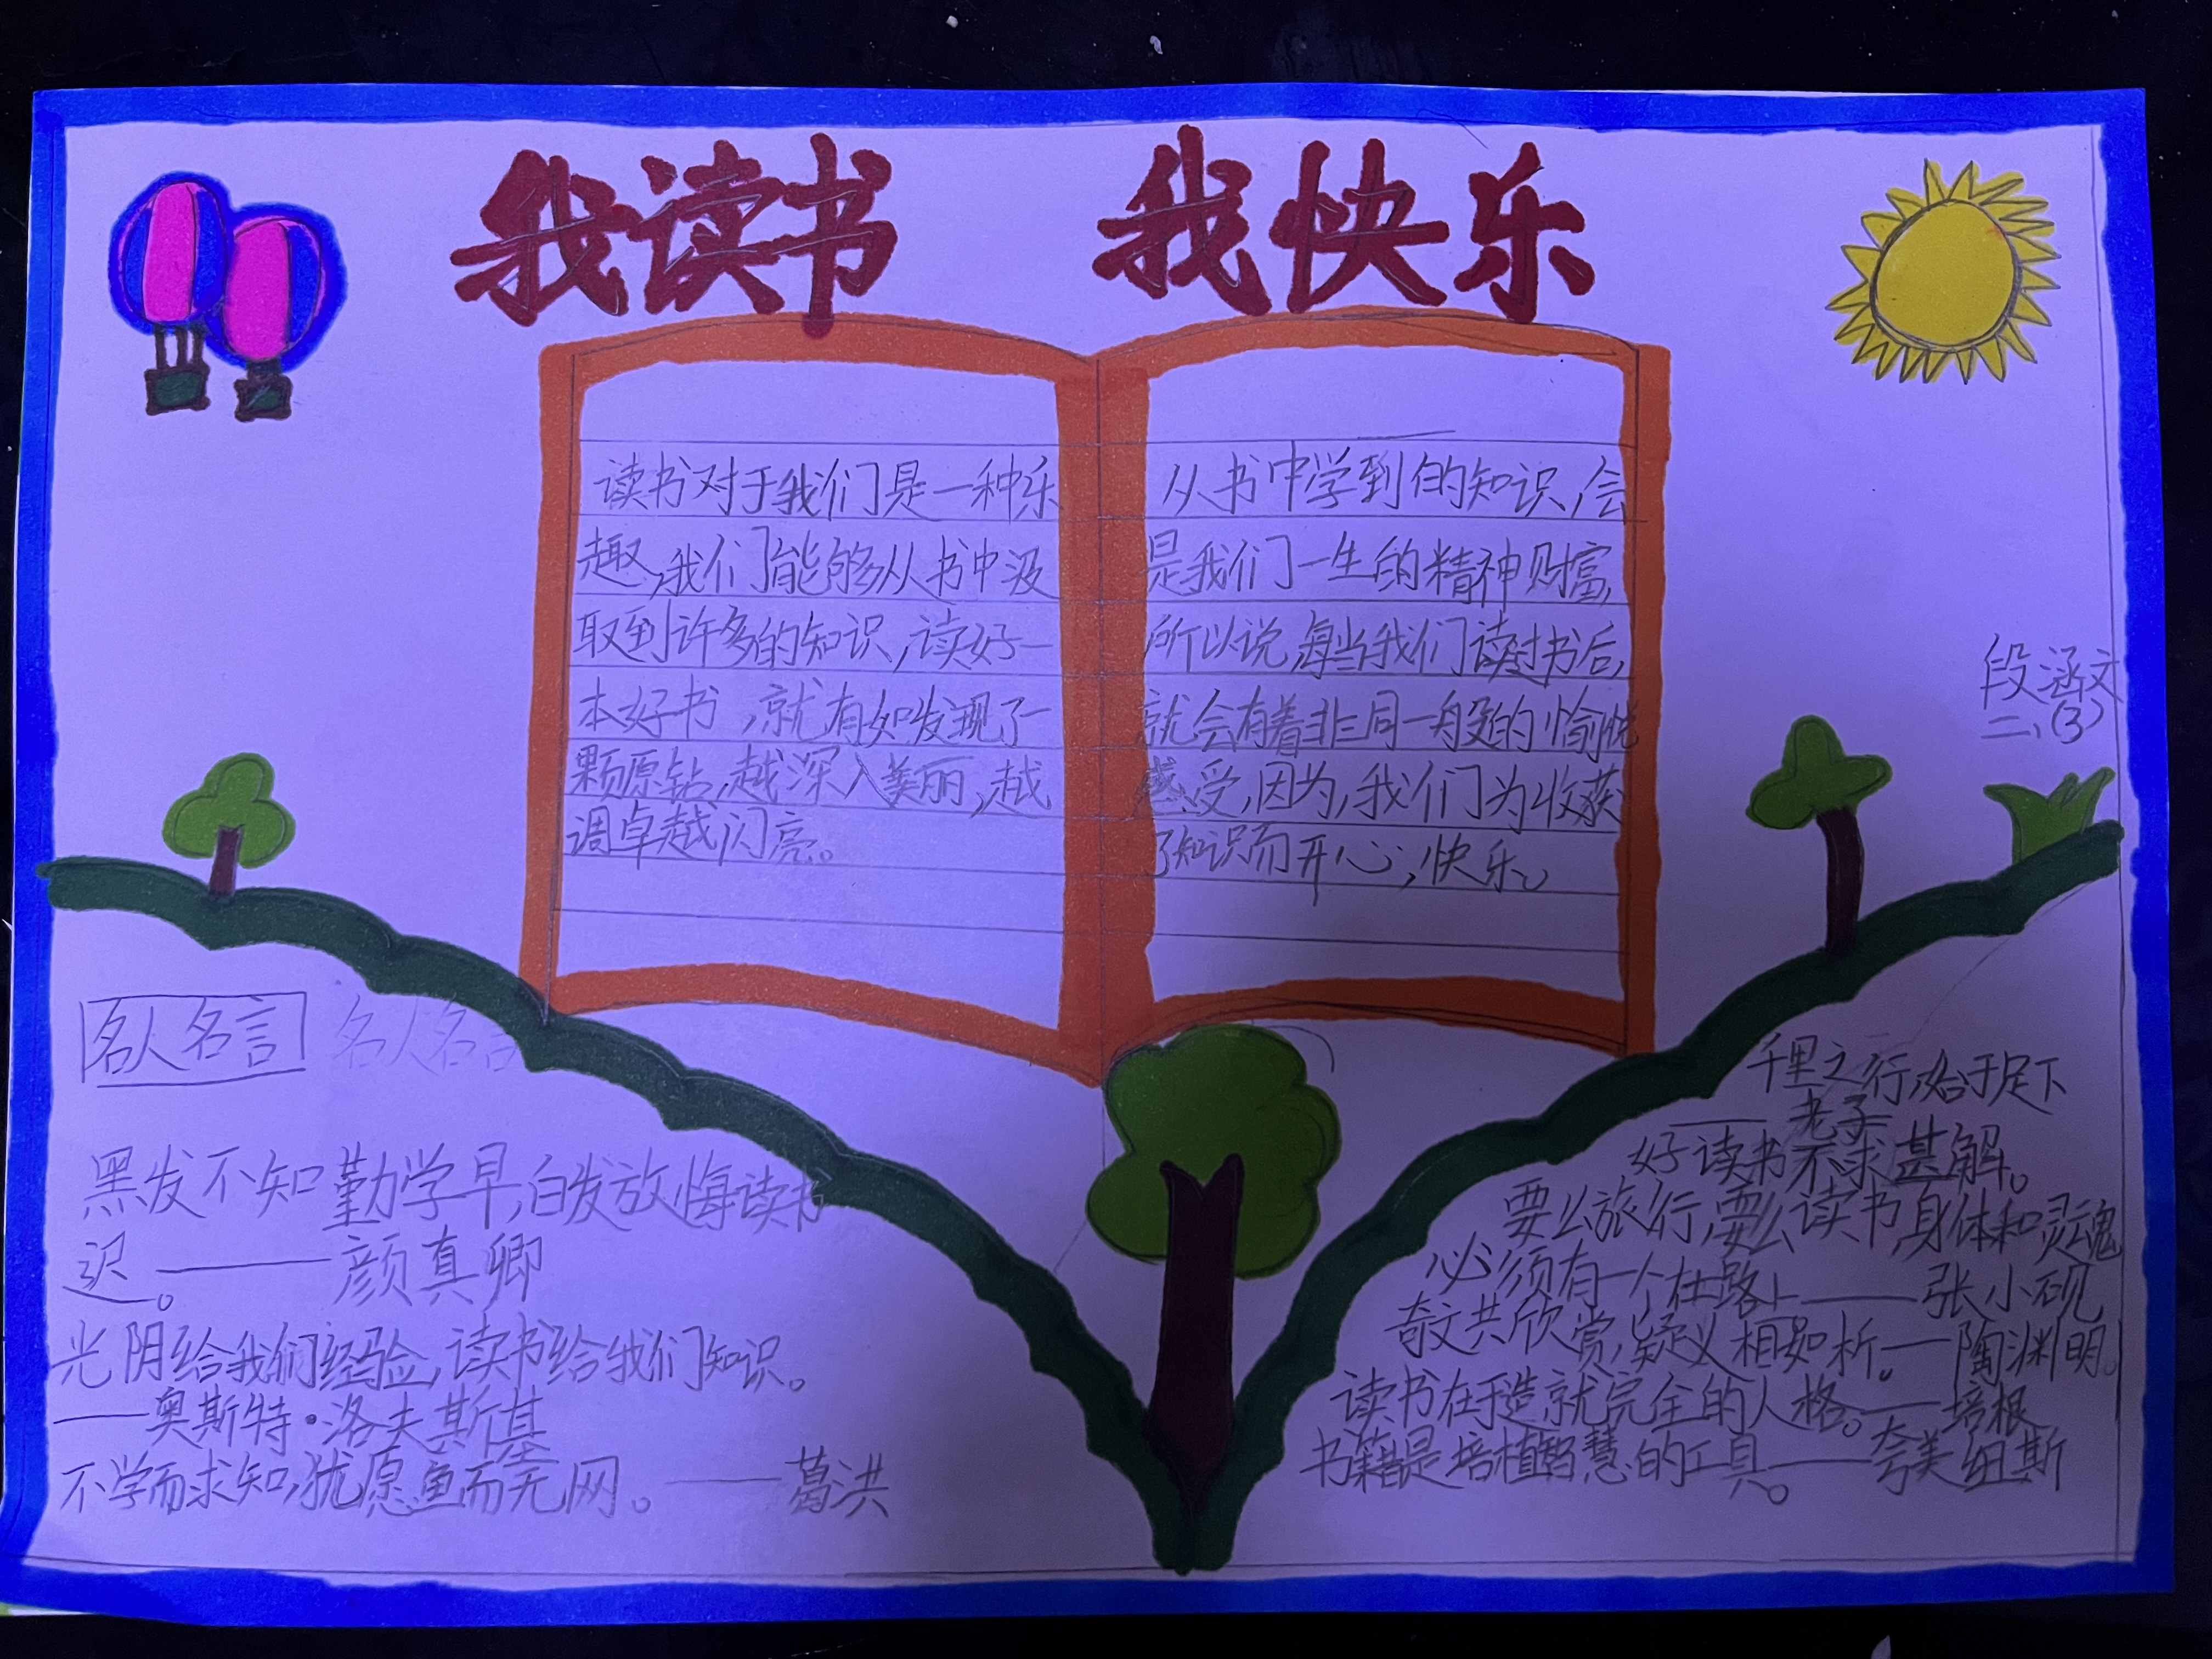 我读书 我快乐
读书对于我们是一种乐
趣,我们能够从书中汲
取到许多的知识,读好一
本好书,就有如发现了一
颗原钻,越深入美丽,越
调卓越闪亮。
从书中学到的知识,会
是我们一生的精神财富,
所以说,每当我们读过书后,
就会有着非同一般的愉悦
感受,因为,我们为收获
了知识而开心,快乐。
段涵文
二、(3)
名人名言 名人名言
黑发不知勤学早,白发放悔读书
迟。——颜真卿
光阴给我们经验,读书给我们知识。
——奥斯特·洛夫斯基
不学而求知,犹愿鱼而无网。——葛洪
千里之行,始于足下
——老子
好读书不求甚解。
要么旅行,要么读书,身体和灵魂
必须有一个在路上——张小砚
奇文共欣赏,疑义相如析。—陶渊明
读书在于造就完全的人格。——培根
书籍是培植智慧的工具。——夸美纽斯